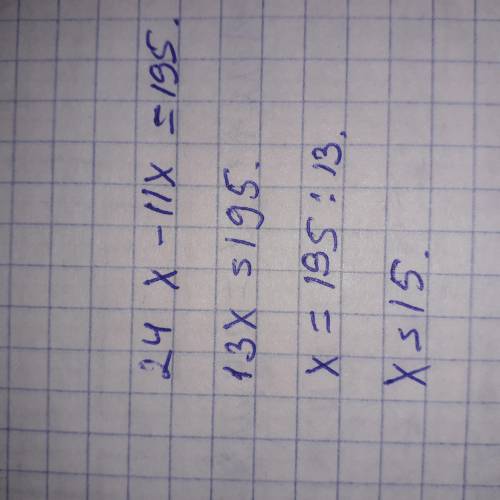 24 x - 11x = 195.
13x = 195.
x = 195 : 13.
x = 15.